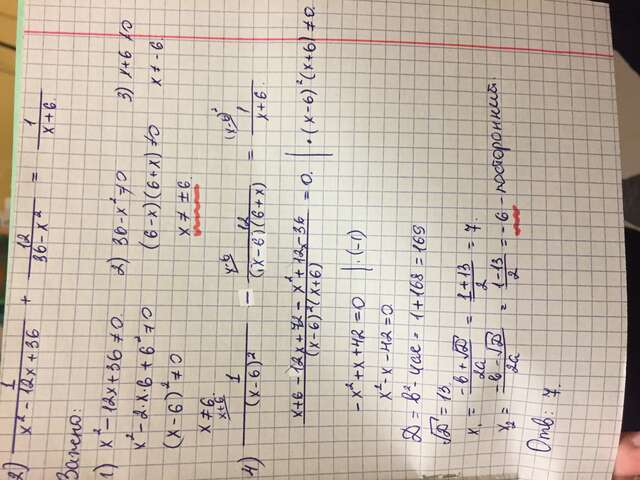 2) 1/(x² - 12x + 36) + 12/(36 - x²) = 1/(x + 6)
Важно:
1) x² - 12x + 36 ≠ 0
x² - 2·x·6 + 6² ≠ 0
(x - 6)² ≠ 0
x ≠ 6.
2) 36 - x² ≠ 0
(6 - x)(6 + x) ≠ 0
x ≠ ±6.
3) x + 6 ≠ 0
x ≠ -6.
x+6 x-6 (x-6)²
4) 1/(x - 6)² - 12/((x - 6)(6 + x)) = 1/(x + 6)
(x + 6 - 12x + 72 - x² + 12x - 36)/((x - 6)²(x + 6)) = 0. | · (x - 6)²(x + 6) ≠ 0.
-x² + x + 42 = 0 | · (-1)
x² - x - 42 = 0
D = b² - 4ac = 1 + 168 = 169
√D = 13.
x₁ = (-b + √D)/2a = (1 + 13)/2 = 7.
x₂ = (-b - √D)/2a = (1 - 13)/2 = -6 - посторонний.
Отв: 7.